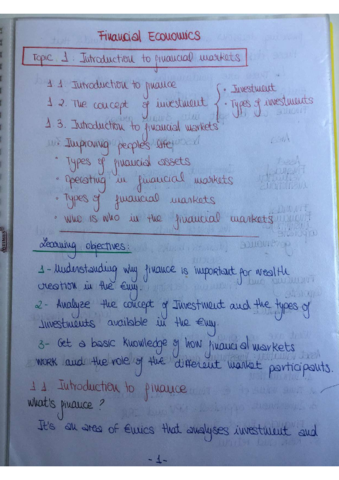 Financial Economics
Topic 1. Introduction to financial markets
1.1. Introduction to finance
1.2. The concept of investment
• Investment
• Types of investments
1.3. Introduction to financial markets
• Improving people's life
• Types of financial assets
• Operating in financial markets
• Types of financial markets
• Who is who in the financial markets
Learning objectives
1- Understanding why finance is important for wealth
creation in the Emy.
2- Analyze the concept of Investment and the types of
Investments available in the Emy.
3- Get a basic knowledge of how financial markets
work and the role of the different market participants.
1.1 Introduction to finance
what's finance?
It's an area of Emics that analyses investment and
-1-